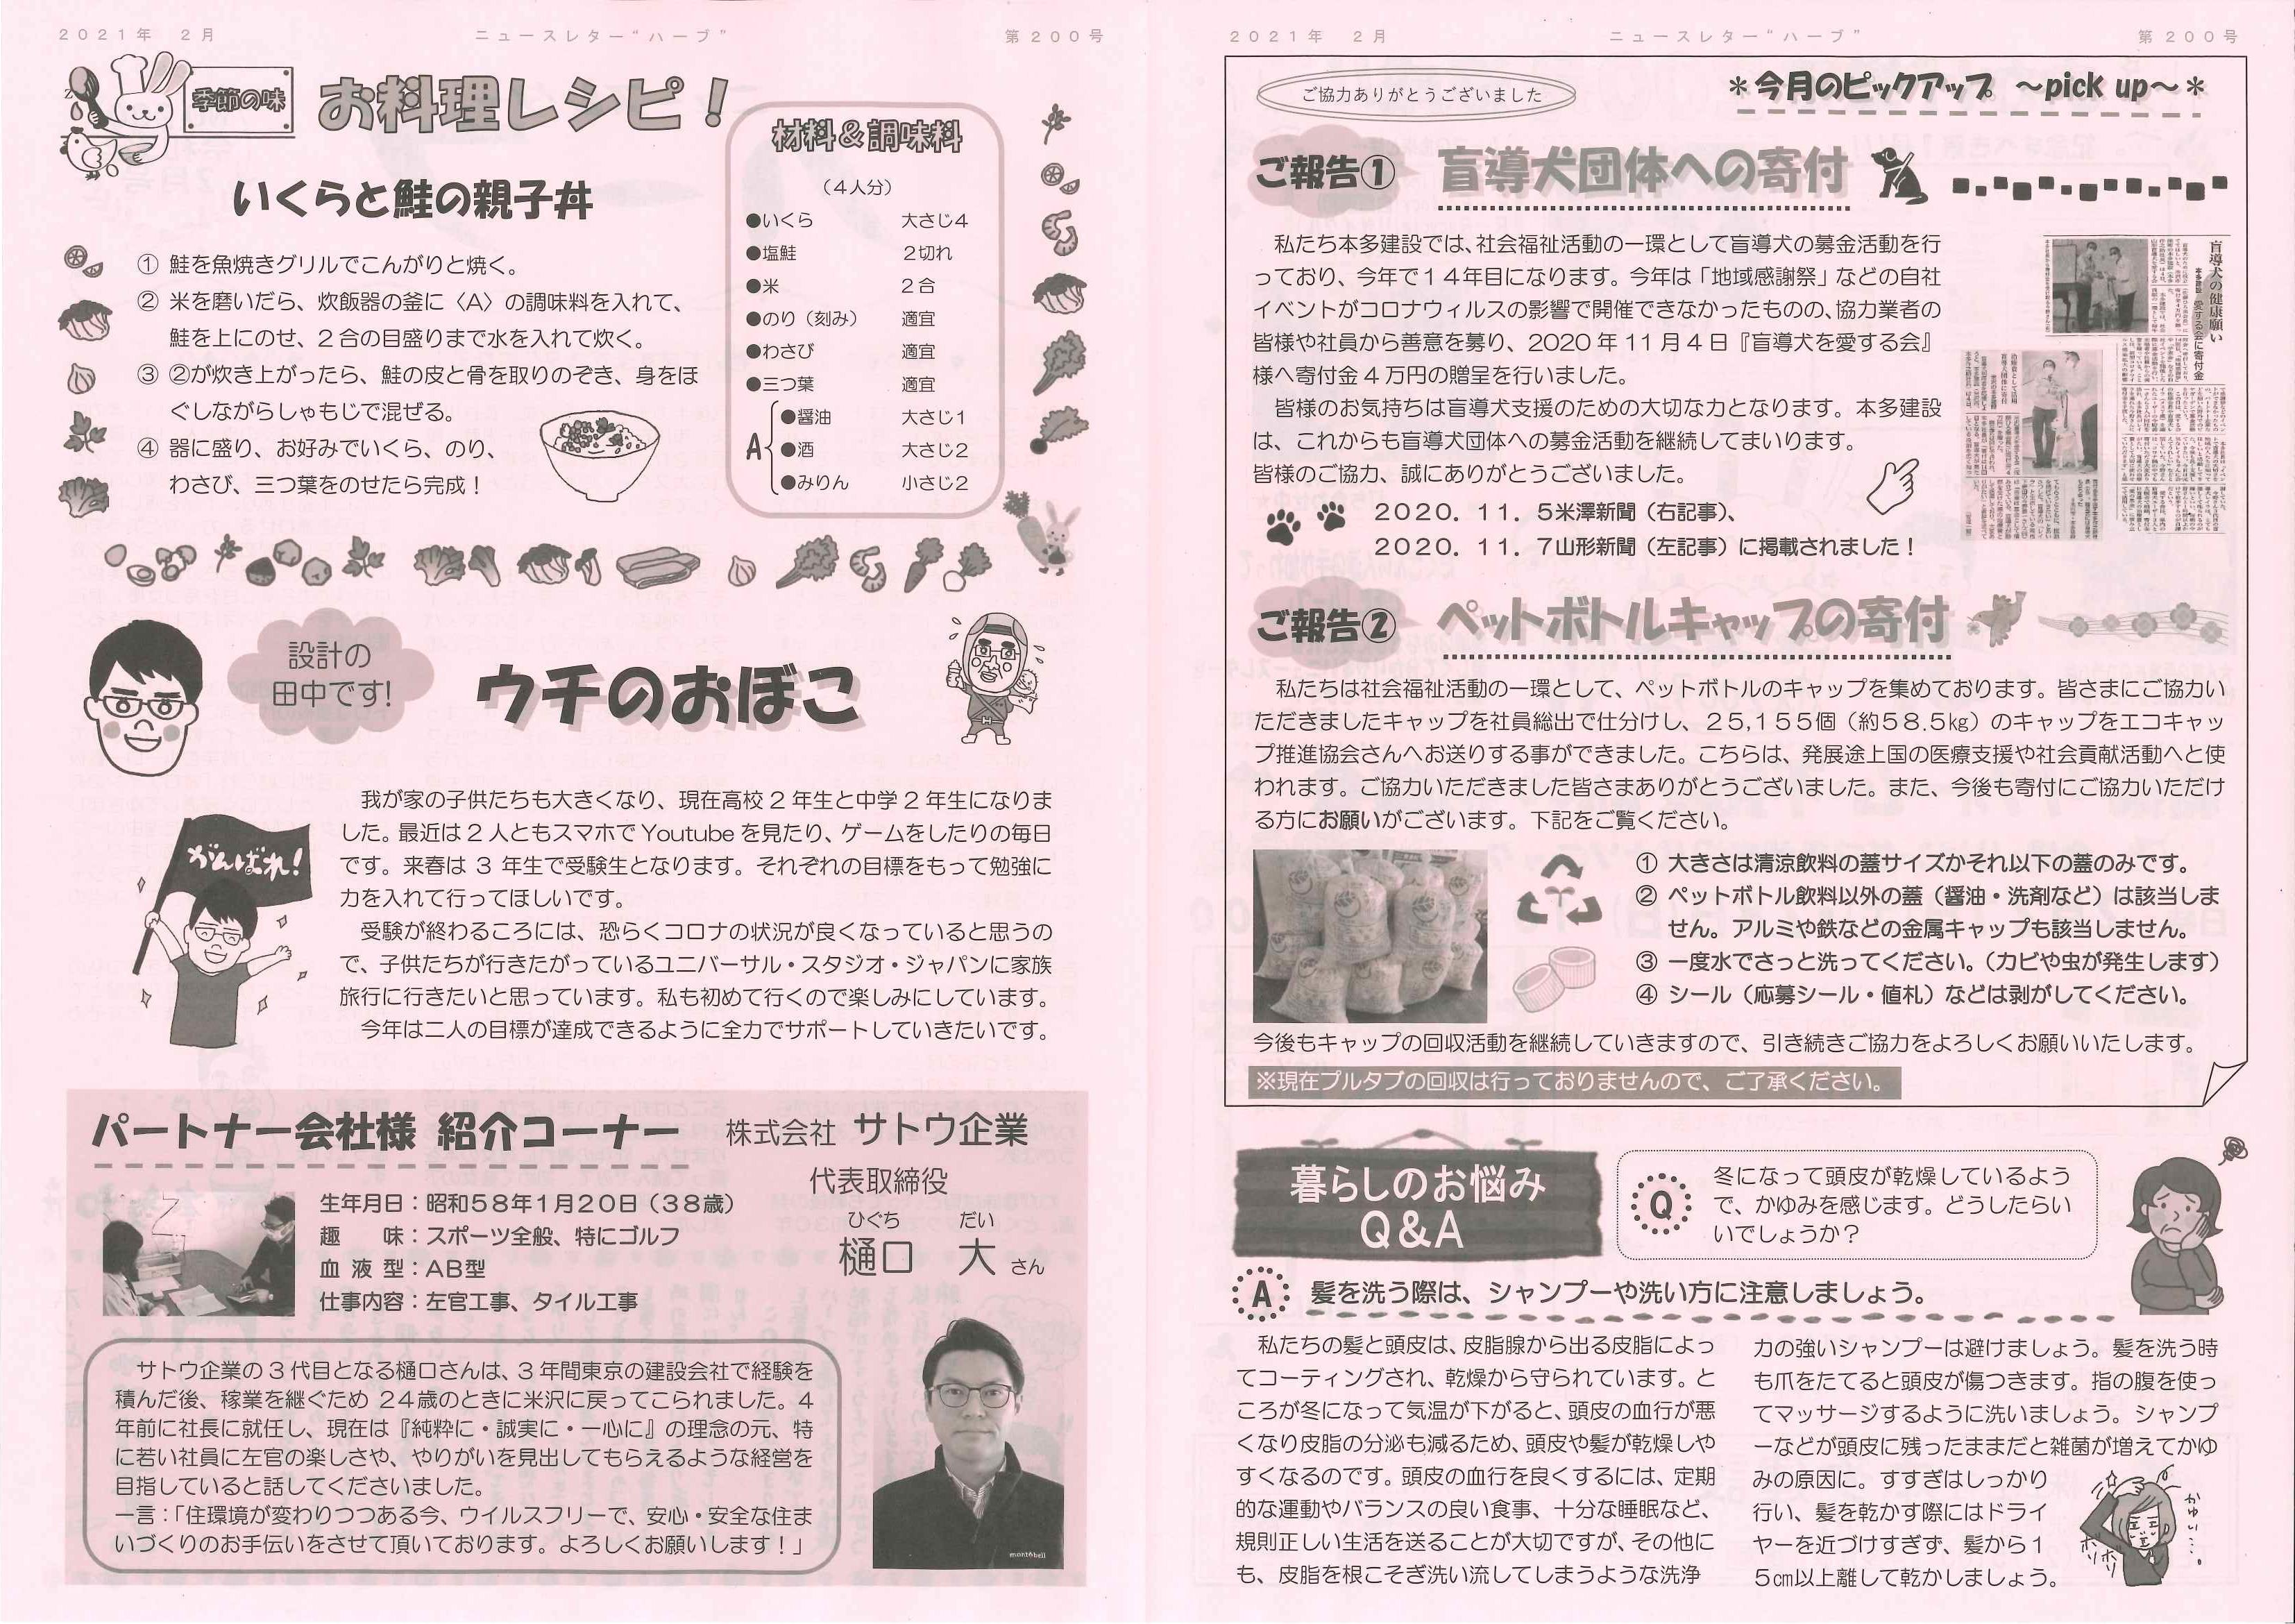 2021年 2月
ニュースレター“ハーブ”
第200号
季節の味
お料理レシピ！
いくらと鮭の親子丼
① 鮭を魚焼きグリルでこんがりと焼く。
② 米を磨いだら、炊飯器の釜に〈A〉の調味料を入れて、
鮭を上にのせ、2合の目盛りまで水を入れて炊く。
③ ②が炊き上がったら、鮭の皮と骨を取りのぞき、身をほ
ぐしながらしゃもじで混ぜる。
④ 器に盛り、お好みでいくら、のり、
わさび、三つ葉をのせたら完成！
材料＆調味料
（4人分）
●いくら 大さじ4
●塩鮭 2切れ
●米 2合
●のり（刻み） 適宜
●わさび 適宜
●三つ葉 適宜
A
●醤油 大さじ1
●酒 大さじ2
●みりん 小さじ2
設計の
田中です!
ウチのおぼこ
がんばれ!
我が家の子供たちも大きくなり、現在高校2年生と中学2年生になりま
した。最近は2人ともスマホでYoutubeを見たり、ゲームをしたりの毎日
です。来春は3年生で受験生となります。それぞれの目標をもって勉強に
力を入れて行ってほしいです。
受験が終わるころには、恐らくコロナの状況が良くなっていると思うの
で、子供たちが行きたがっているユニバーサル・スタジオ・ジャパンに家族
旅行に行きたいと思っています。私も初めて行くので楽しみにしています。
今年は二人の目標が達成できるように全力でサポートしていきたいです。
パートナー会社様 紹介コーナー
株式会社 サトウ企業
代表取締役
ひぐち だい
樋口 大 さん
生年月日：昭和58年1月20日（38歳）
趣 味：スポーツ全般、特にゴルフ
血液型：AB型
仕事内容：左官工事、タイル工事
サトウ企業の3代目となる樋口さんは、3年間東京の建設会社で経験を
積んだ後、稼業を継ぐため24歳のときに米沢に戻ってこられました。4
年前に社長に就任し、現在は『純粋に・誠実に・一心に』の理念の元、特
に若い社員に左官の楽しさや、やりがいを見出してもらえるような経営を
目指していると話してくださいました。
一言：「住環境が変わりつつある今、ウイルスフリーで、安心・安全な住ま
いづくりのお手伝いをさせて頂いております。よろしくお願いします！」
montbell
2021年 2月
ニュースレター“ハーブ”
第200号
ご協力ありがとうございました
＊今月のピックアップ ～pick up～＊
ご報告①
盲導犬団体への寄付
私たち本多建設では、社会福祉活動の一環として盲導犬の募金活動を行
っており、今年で14年目になります。今年は「地域感謝祭」などの自社
イベントがコロナウィルスの影響で開催できなかったものの、協力業者の
皆様や社員から善意を募り、2020年11月4日『盲導犬を愛する会』
様へ寄付金4万円の贈呈を行いました。
皆様のお気持ちは盲導犬支援のための大切な力となります。本多建設
は、これからも盲導犬団体への募金活動を継続してまいります。
皆様のご協力、誠にありがとうございました。
2020．11．5米澤新聞（右記事）、
2020．11．7山形新聞（左記事）に掲載されました！
盲導犬の健康願い
ご報告②
ペットボトルキャップの寄付
私たちは社会福祉活動の一環として、ペットボトルのキャップを集めております。皆さまにご協力い
ただきましたキャップを社員総出で仕分けし、25,155個（約58.5㎏）のキャップをエコキャッ
プ推進協会さんへお送りする事ができました。こちらは、発展途上国の医療支援や社会貢献活動へと使
われます。ご協力いただきました皆さまありがとうございました。また、今後も寄付にご協力いただけ
る方にお願いがございます。下記をご覧ください。
① 大きさは清涼飲料の蓋サイズかそれ以下の蓋のみです。
② ペットボトル飲料以外の蓋（醤油・洗剤など）は該当しま
せん。アルミや鉄などの金属キャップも該当しません。
③ 一度水でさっと洗ってください。（カビや虫が発生します）
④ シール（応募シール・値札）などは剥がしてください。
今後もキャップの回収活動を継続していきますので、引き続きご協力をよろしくお願いいたします。
※現在プルタブの回収は行っておりませんので、ご了承ください。
暮らしのお悩み
Q＆A
Q
冬になって頭皮が乾燥しているよう
で、かゆみを感じます。どうしたらい
いでしょうか？
A
髪を洗う際は、シャンプーや洗い方に注意しましょう。
私たちの髪と頭皮は、皮脂腺から出る皮脂によっ
てコーティングされ、乾燥から守られています。と
ころが冬になって気温が下がると、頭皮の血行が悪
くなり皮脂の分泌も減るため、頭皮や髪が乾燥しや
すくなるのです。頭皮の血行を良くするには、定期
的な運動やバランスの良い食事、十分な睡眠など、
規則正しい生活を送ることが大切ですが、その他に
も、皮脂を根こそぎ洗い流してしまうような洗浄
力の強いシャンプーは避けましょう。髪を洗う時
も爪をたてると頭皮が傷つきます。指の腹を使っ
てマッサージするように洗いましょう。シャンプ
ーなどが頭皮に残ったままだと雑菌が増えてかゆ
みの原因に。すすぎはしっかり
行い、髪を乾かす際にはドライ
ヤーを近づけすぎず、髪から1
5㎝以上離して乾かしましょう。
かゆい…。
ボリボリ